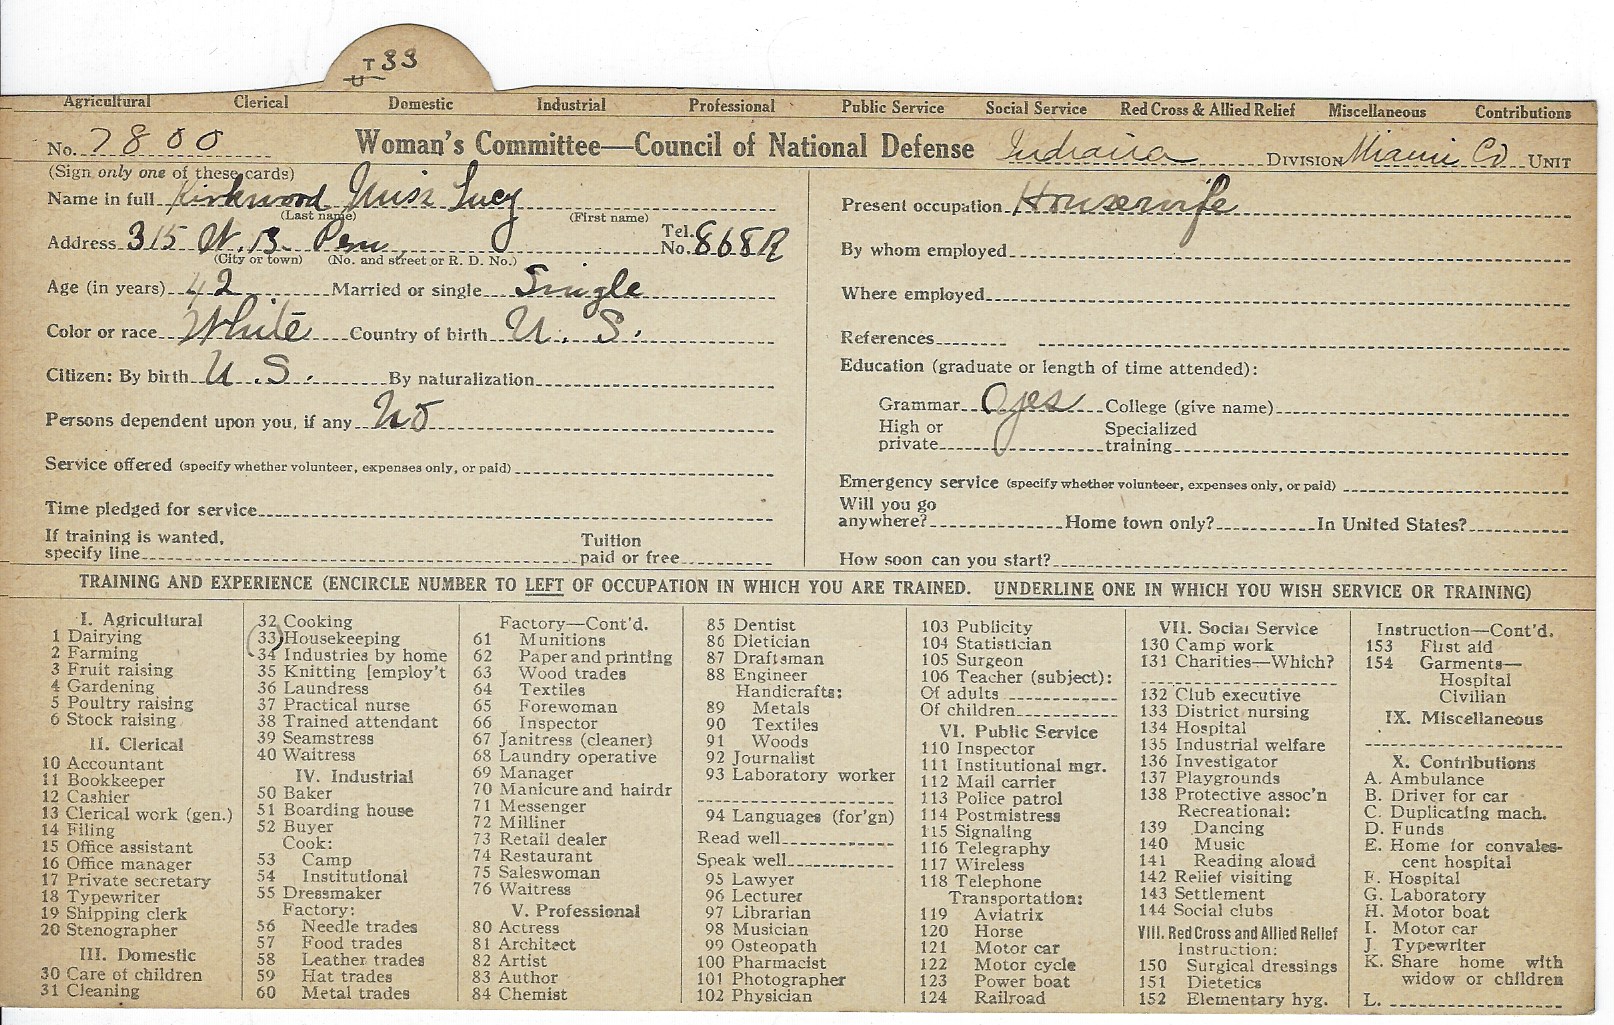 T 33
U
Agricultural Clerical Domestic Industrial Professional Public Service Social Service Red Cross & Allied Relief Miscellaneous Contributions
No. 7800 Woman's Committee—Council of National Defense Indiana DIVISION Miami Co UNIT
(Sign only one of these cards)
Name in full Kirkwood Miss Lucy
(Last name) (First name)
Address 315 W. 13 Peru Tel. No. 868R
(City or town) (No. and street or R. D. No.)
Age (in years) 42 Married or single Single
Color or race White Country of birth U. S.
Citizen: By birth U. S. By naturalization
Persons dependent upon you, if any No
Service offered (specify whether volunteer, expenses only, or paid)
Time pledged for service
If training is wanted, specify line Tuition paid or free
Present occupation Housewife
By whom employed
Where employed
References
Education (graduate or length of time attended):
Grammar yes College (give name)
High or private Specialized training
Emergency service (specify whether volunteer, expenses only, or paid)
Will you go anywhere? Home town only? In United States?
How soon can you start?
TRAINING AND EXPERIENCE (ENCIRCLE NUMBER TO LEFT OF OCCUPATION IN WHICH YOU ARE TRAINED. UNDERLINE ONE IN WHICH YOU WISH SERVICE OR TRAINING)
I. Agricultural
1 Dairying
2 Farming
3 Fruit raising
4 Gardening
5 Poultry raising
6 Stock raising
II. Clerical
10 Accountant
11 Bookkeeper
12 Cashier
13 Clerical work (gen.)
14 Filing
15 Office assistant
16 Office manager
17 Private secretary
18 Typewriter
19 Shipping clerk
20 Stenographer
III. Domestic
30 Care of children
31 Cleaning
32 Cooking
33 Housekeeping
34 Industries by home
35 Knitting [employ't
36 Laundress
37 Practical nurse
38 Trained attendant
39 Seamstress
40 Waitress
IV. Industrial
50 Baker
51 Boarding house
52 Buyer
Cook:
53 Camp
54 Institutional
55 Dressmaker
Factory:
56 Needle trades
57 Food trades
58 Leather trades
59 Hat trades
60 Metal trades
Factory—Cont'd.
61 Munitions
62 Paper and printing
63 Wood trades
64 Textiles
65 Forewoman
66 Inspector
67 Janitress (cleaner)
68 Laundry operative
69 Manager
70 Manicure and hairdr
71 Messenger
72 Milliner
73 Retail dealer
74 Restaurant
75 Saleswoman
76 Waitress
V. Professional
80 Actress
81 Architect
82 Artist
83 Author
84 Chemist
85 Dentist
86 Dietician
87 Draftsman
88 Engineer
Handicrafts:
89 Metals
90 Textiles
91 Woods
92 Journalist
93 Laboratory worker
94 Languages (for'gn)
Read well
Speak well
95 Lawyer
96 Lecturer
97 Librarian
98 Musician
99 Osteopath
100 Pharmacist
101 Photographer
102 Physician
103 Publicity
104 Statistician
105 Surgeon
106 Teacher (subject):
Of adults
Of children
VI. Public Service
110 Inspector
111 Institutional mgr.
112 Mail carrier
113 Police patrol
114 Postmistress
115 Signaling
116 Telegraphy
117 Wireless
118 Telephone
Transportation:
119 Aviatrix
120 Horse
121 Motor car
122 Motor cycle
123 Power boat
124 Railroad
VII. Social Service
130 Camp work
131 Charities—Which?
132 Club executive
133 District nursing
134 Hospital
135 Industrial welfare
136 Investigator
137 Playgrounds
138 Protective assoc'n
Recreational:
139 Dancing
140 Music
141 Reading aloud
142 Relief visiting
143 Settlement
144 Social clubs
VIII. Red Cross and Allied Relief
Instruction:
150 Surgical dressings
151 Dietetics
152 Elementary hyg.
Instruction—Cont'd.
153 First aid
154 Garments—
Hospital
Civilian
IX. Miscellaneous
X. Contributions
A. Ambulance
B. Driver for car
C. Duplicating mach.
D. Funds
E. Home for convales-
cent hospital
F. Hospital
G. Laboratory
H. Motor boat
I. Motor car
J. Typewriter
K. Share home with
widow or children
L.